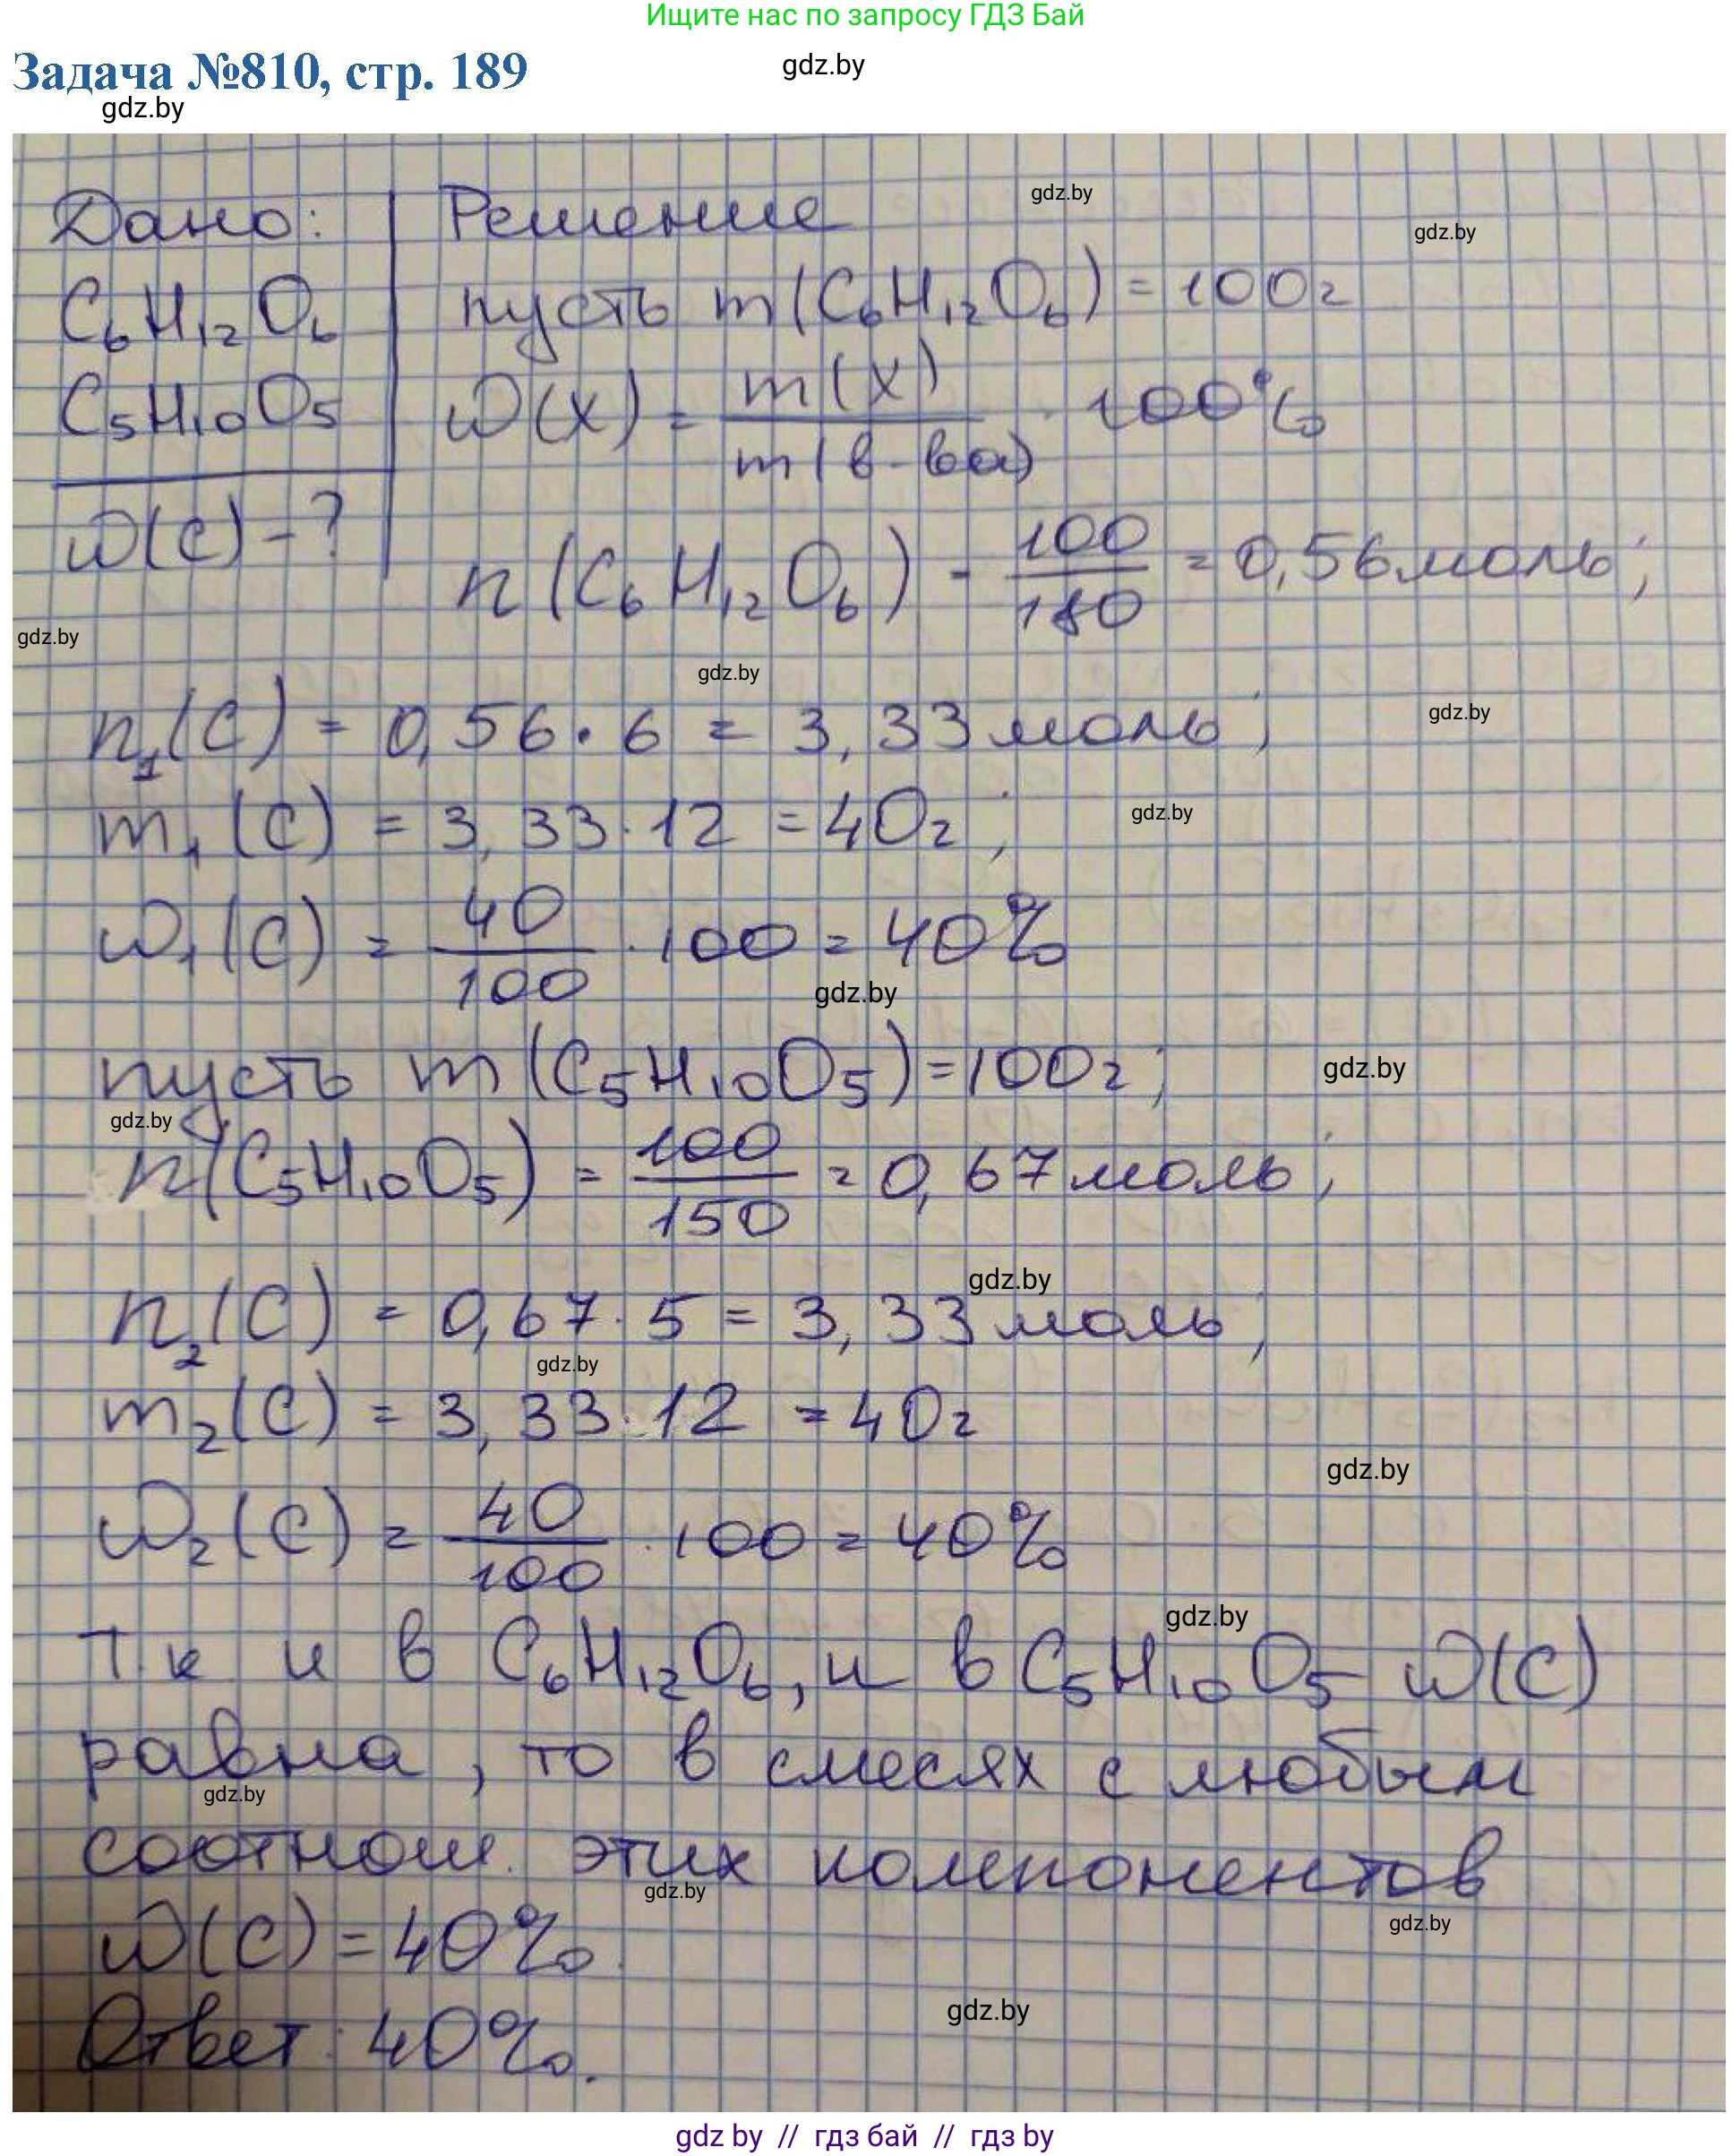 Ищите нас по запросу ГДЗ Бай
Задача №810, стр. 189
gdz.by
gdz.by
Дано: Решение
gdz.by
gdz.by
C₆H₁₂O₆ пусть m(C₆H₁₂O₆) = 100г
C₅H₁₀O₅ ω(X) = m(X) / m(в-ва) · 100%
ω(C) - ?
n(C₆H₁₂O₆) = 100/180 = 0,56 моль;
gdz.by
gdz.by
gdz.by
n₁(C) = 0,56 · 6 = 3,33 моль;
m₁(C) = 3,33 · 12 = 40г;
gdz.by
ω₁(C) = 40/100 · 100 = 40%
gdz.by
пусть m(C₅H₁₀O₅) = 100г;
gdz.by
gdz.by
n(C₅H₁₀O₅) = 100/150 = 0,67 моль;
gdz.by
n₂(C) = 0,67 · 5 = 3,33 моль;
gdz.by
m₂(C) = 3,33 · 12 = 40г
gdz.by
ω₂(C) = 40/100 · 100 = 40%
gdz.by
Т.к и в C₆H₁₂O₆, и в C₅H₁₀O₅ ω(C)
равна, то в смесях с любым
gdz.by
соотнош. этих компонентов
gdz.by
gdz.by
ω(C) = 40%.
gdz.by
Ответ: 40%.
gdz by // гдз бай // гдз by